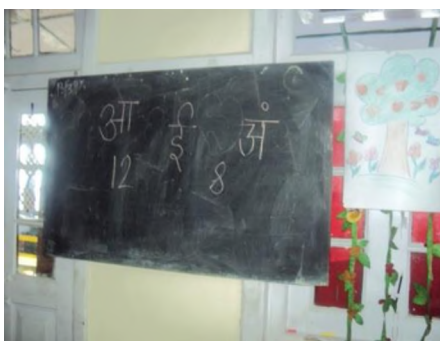 आ ई अं
12 8